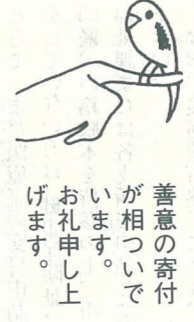 善意の寄付
が相ついで
います。
お礼申し上
げます。